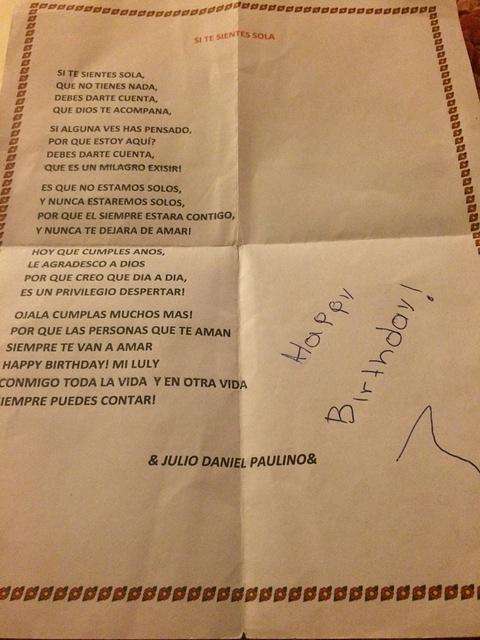 SI TE SIENTES SOLA
SI TE SIENTES SOLA,
QUE NO TIENES NADA,
DEBES DARTE CUENTA,
QUE DIOS TE ACOMPANA,
SI ALGUNA VES HAS PENSADO,
POR QUE ESTOY AQUÍ?
DEBES DARTE CUENTA,
QUE ES UN MILAGRO EXISIR!
ES QUE NO ESTAMOS SOLOS,
Y NUNCA ESTAREMOS SOLOS,
POR QUE EL SIEMPRE ESTARA CONTIGO,
Y NUNCA TE DEJARA DE AMAR!
HOY QUE CUMPLES ANOS,
LE AGRADESCO A DIOS
POR QUE CREO QUE DIA A DIA,
ES UN PRIVILEGIO DESPERTAR!
OJALA CUMPLAS MUCHOS MAS!
POR QUE LAS PERSONAS QUE TE AMAN
SIEMPRE TE VAN A AMAR
HAPPY BIRTHDAY! MI LULY
CONMIGO TODA LA VIDA Y EN OTRA VIDA
IEMPRE PUEDES CONTAR!
& JULIO DANIEL PAULINO&
Happy
Birthday!